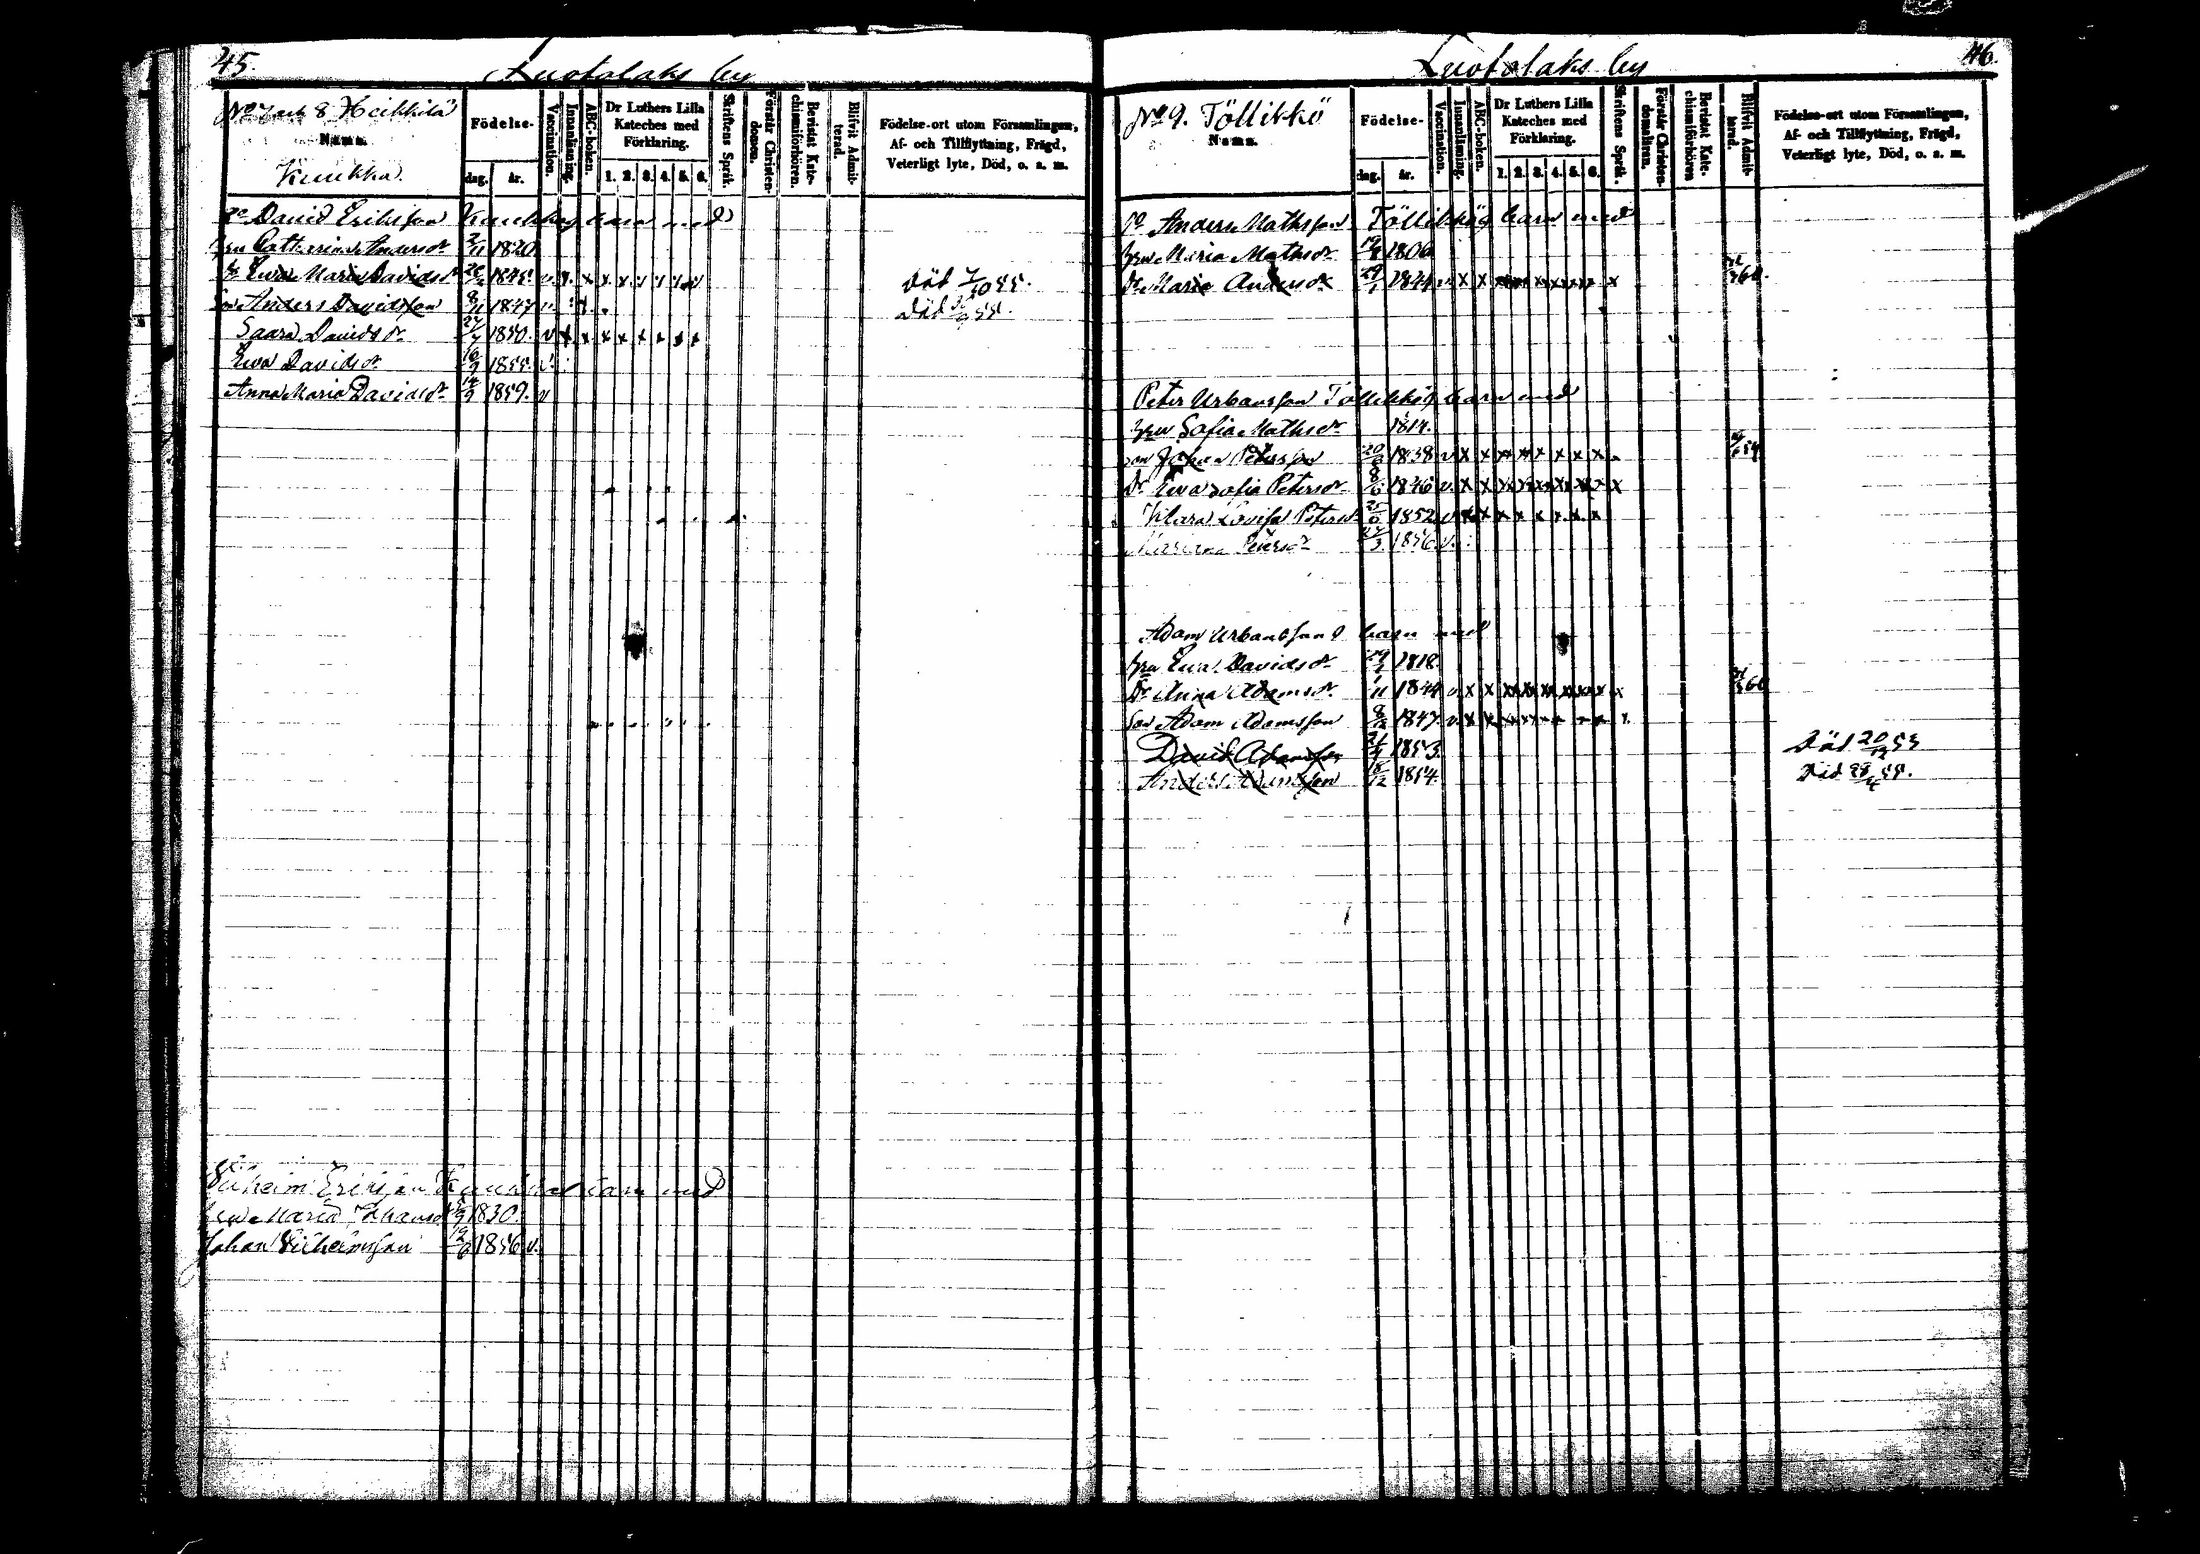 45.
Luotolaks by
No 7 och 8 Heikkilä
Namn.
Kuukka.
Födelse-
dag. år.
Vaccination.
Innanläsning.
ABC-boken.
Dr Luthers Lilla
Kateches med
Förklaring.
1. 2. 3. 4. 5. 6.
Skriftens Språk.
Förstår Christen-
domen.
Bevistat Kate-
chismiförhören.
Blifvit Admit-
terad.
Födelse-ort utom Församlingen,
Af- och Tillflyttning, Frägd,
Veterligt lyte, Död, o. s. m.
David Eriksson Kuukkas barn med
hru Catharina Andersdr 2/11 1820.
Ewa Maria Davidsdr 1845. v. x x x Död 7/10 55.
Son Anders Davidsson 8/11 1847 Död 55.
Saara Davidsdr 1850. v x x x x x x x x
Ewa Davidsdr 16/9 1855. v
Anna Maria Davidsdr 14/9 1859. v
Vilhelm Eriksson Kuukkas barn med
hru Maria Johansdr 1830.
Johan Vilhelmsson 1856 v.
46.
Luotolaks by
No 9. Töllikkö
Namn.
Födelse-
dag. år.
Vaccination.
Innanläsning.
ABC-boken.
Dr Luthers Lilla
Kateches med
Förklaring.
1. 2. 3. 4. 5. 6.
Skriftens Språk.
Förstår Christen-
domsläran.
Bevistat Kate-
chismiförhören
Blifvit Admit-
terad.
Födelse-ort utom Församlingen,
Af- och Tillflyttning, Frägd,
Veterligt lyte, Död, o. s. m.
Anders Mathsson Töllikkös barn med
hru Maria Mathsdr 1806
Dr Maria Andersdr 29/1 1844 v x x x x x x x x x 60.
Peter Urbansson Töllikkös barn med
hru Sofia Mathsdr 1814.
son Johan Petersson 1838 v x x x x x x x x 54
Dr Ewa Sofia Petersdr 8/6 1846 v. x x x x x x x x x
Klara Lovisa Petersdr 25/6 1852 v x x x x x x x x
Mariana Petersdr 1856 v.
Adam Urbanssons barn med
hru Ewa Davidsdr 1818.
Dr Anna Adamsdr 1/11 1844 v. x x x x x x x x x 60
Son Adam Adamsson 1847 v. x x x x x x x x x
David Adamsson 1853. Död 20/12 55
Anders Adamsson 1854. Död 55.